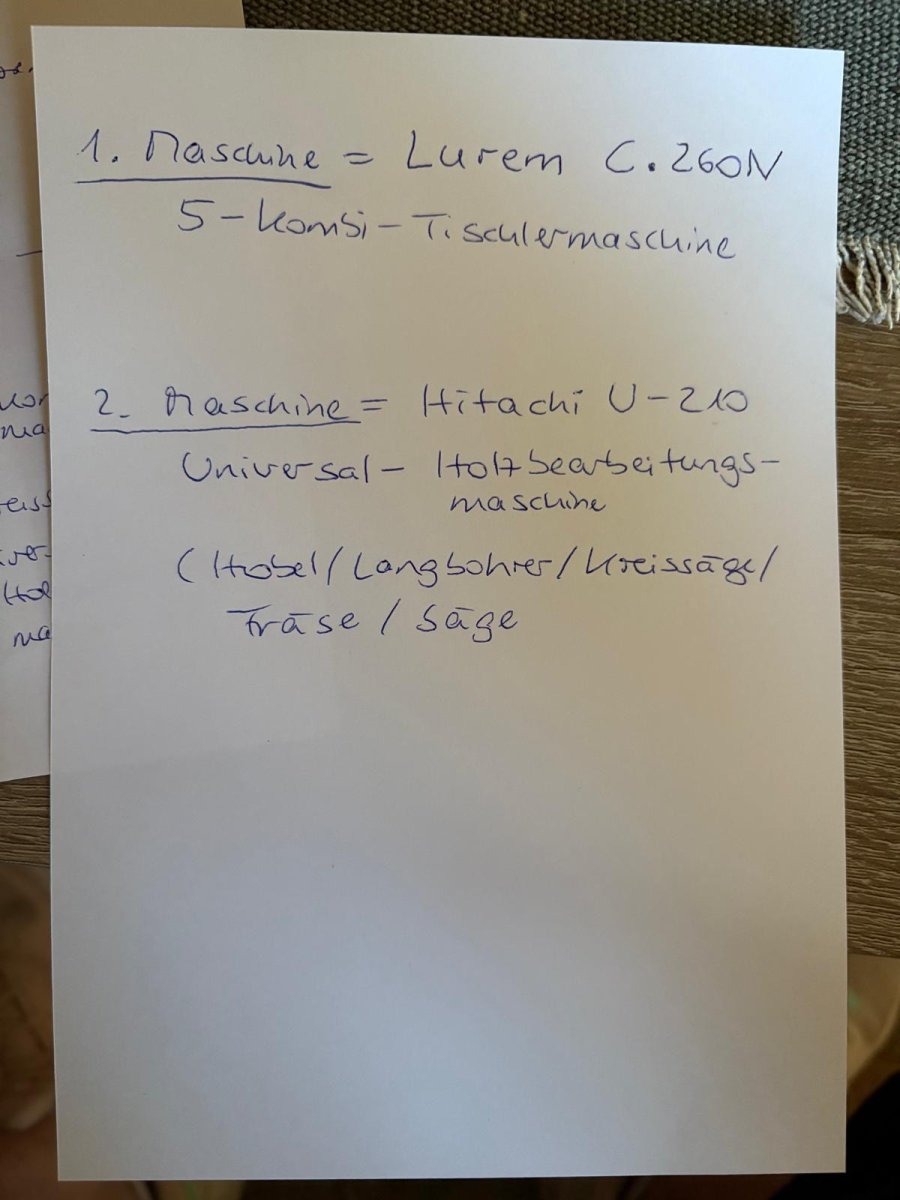 1. Maschine = Lurem C.260N
5-Kombi-Tischlermaschine
2. Maschine = Hitachi U-210
Universal- Holzbearbeitungs-
maschine
(Hobel/Langbohrer/Kreissäge/
Fräse / Säge